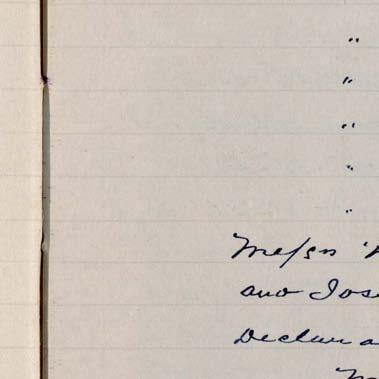 "
"
"
"
"
Messrs
and Jos
Declare a